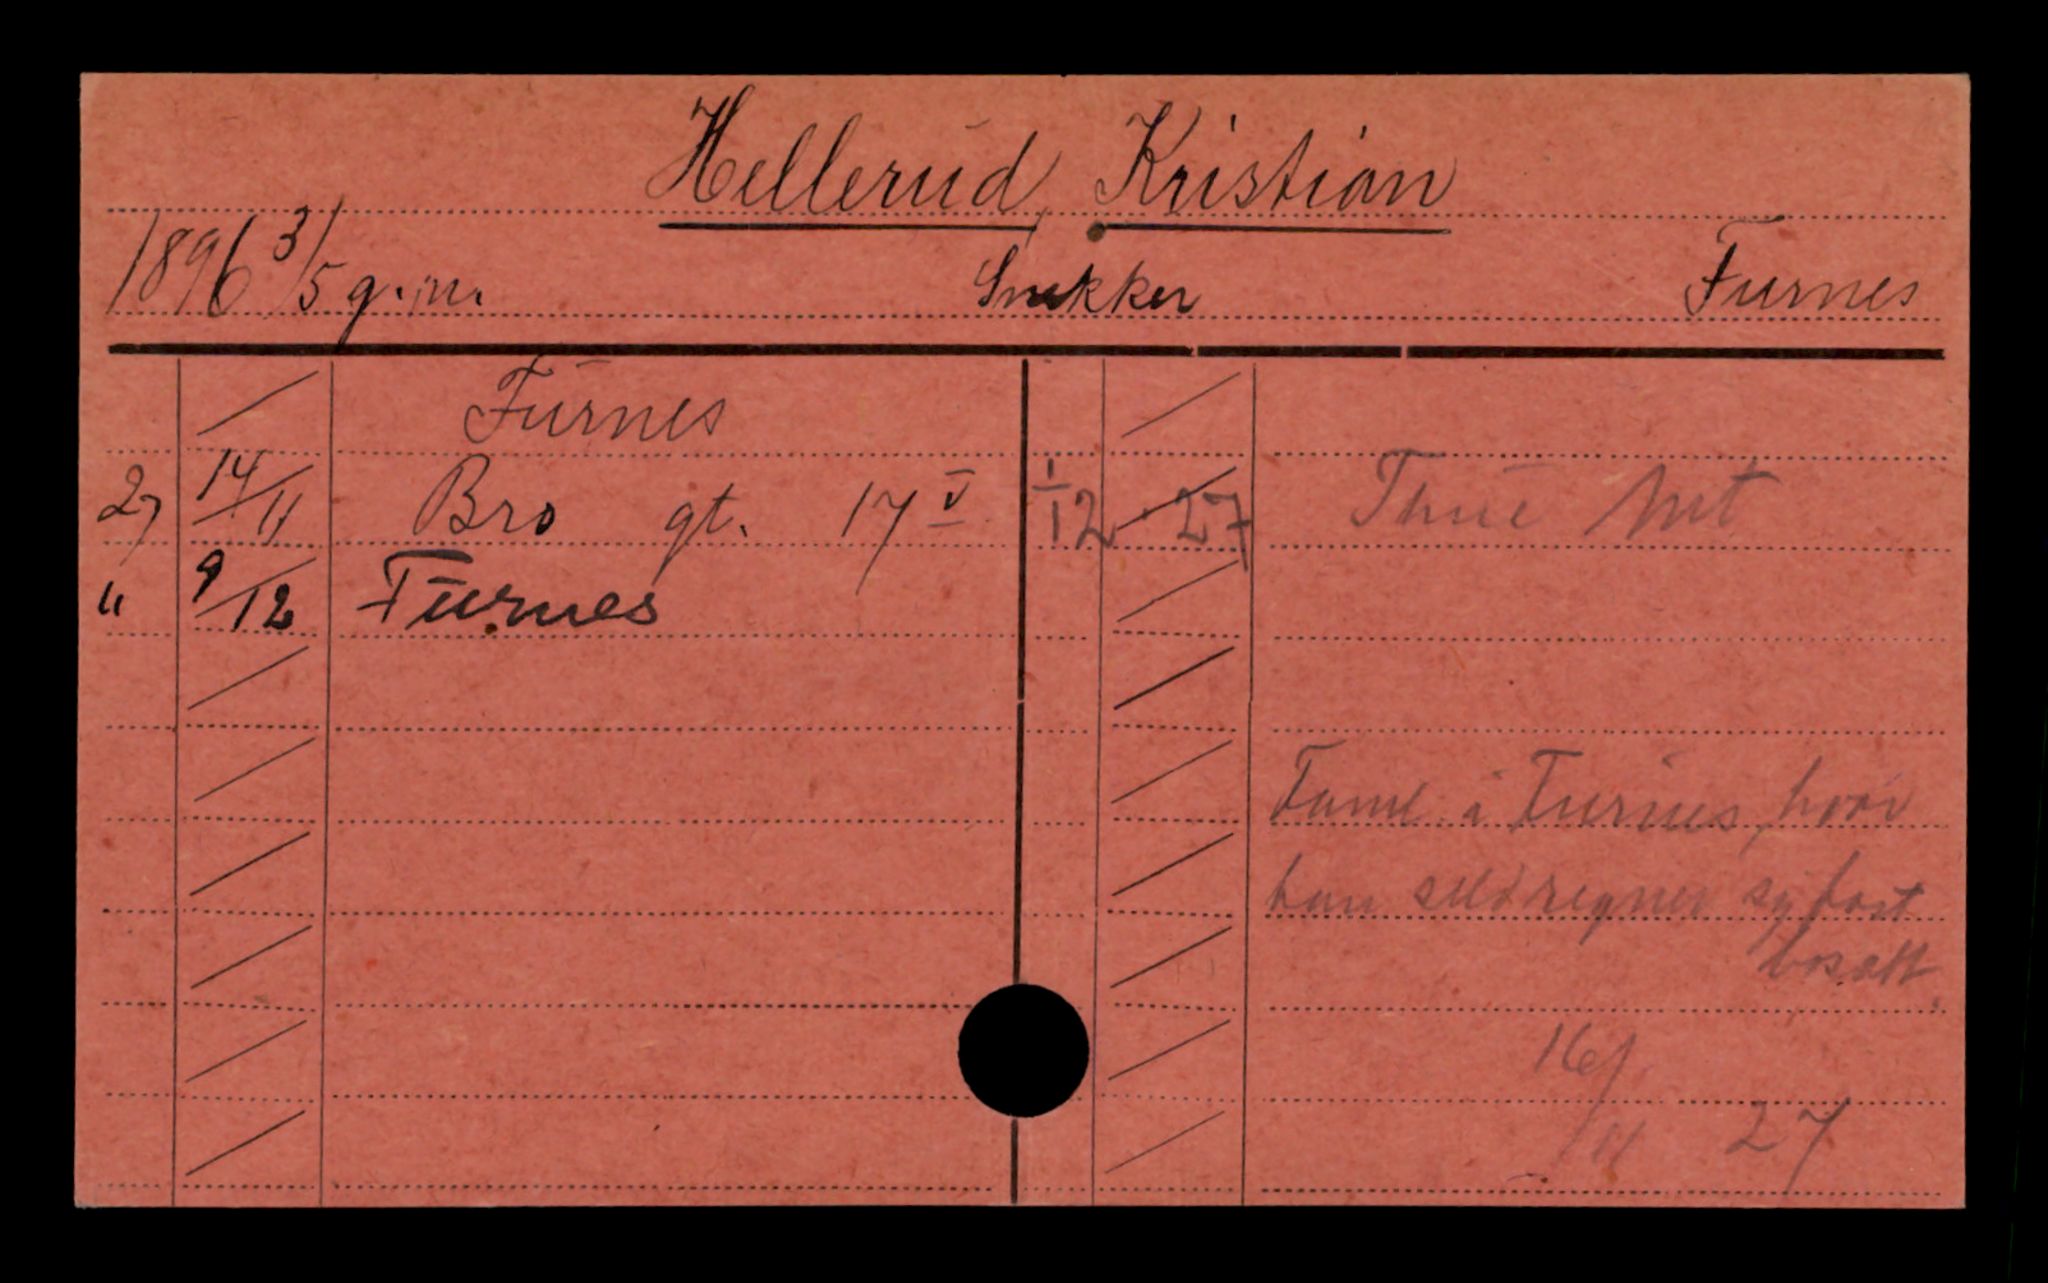 Hellerud, Kristian
1896 3/5 g.m. Snekker Furnes
Furnes
27 14/11 Bro gt. 17 V 1/12 - 27 Thue Mt
" 9/12 Furnes
Faml. i Furnes, hvor
han selv regner sig fast
bosatt.
16/11 27